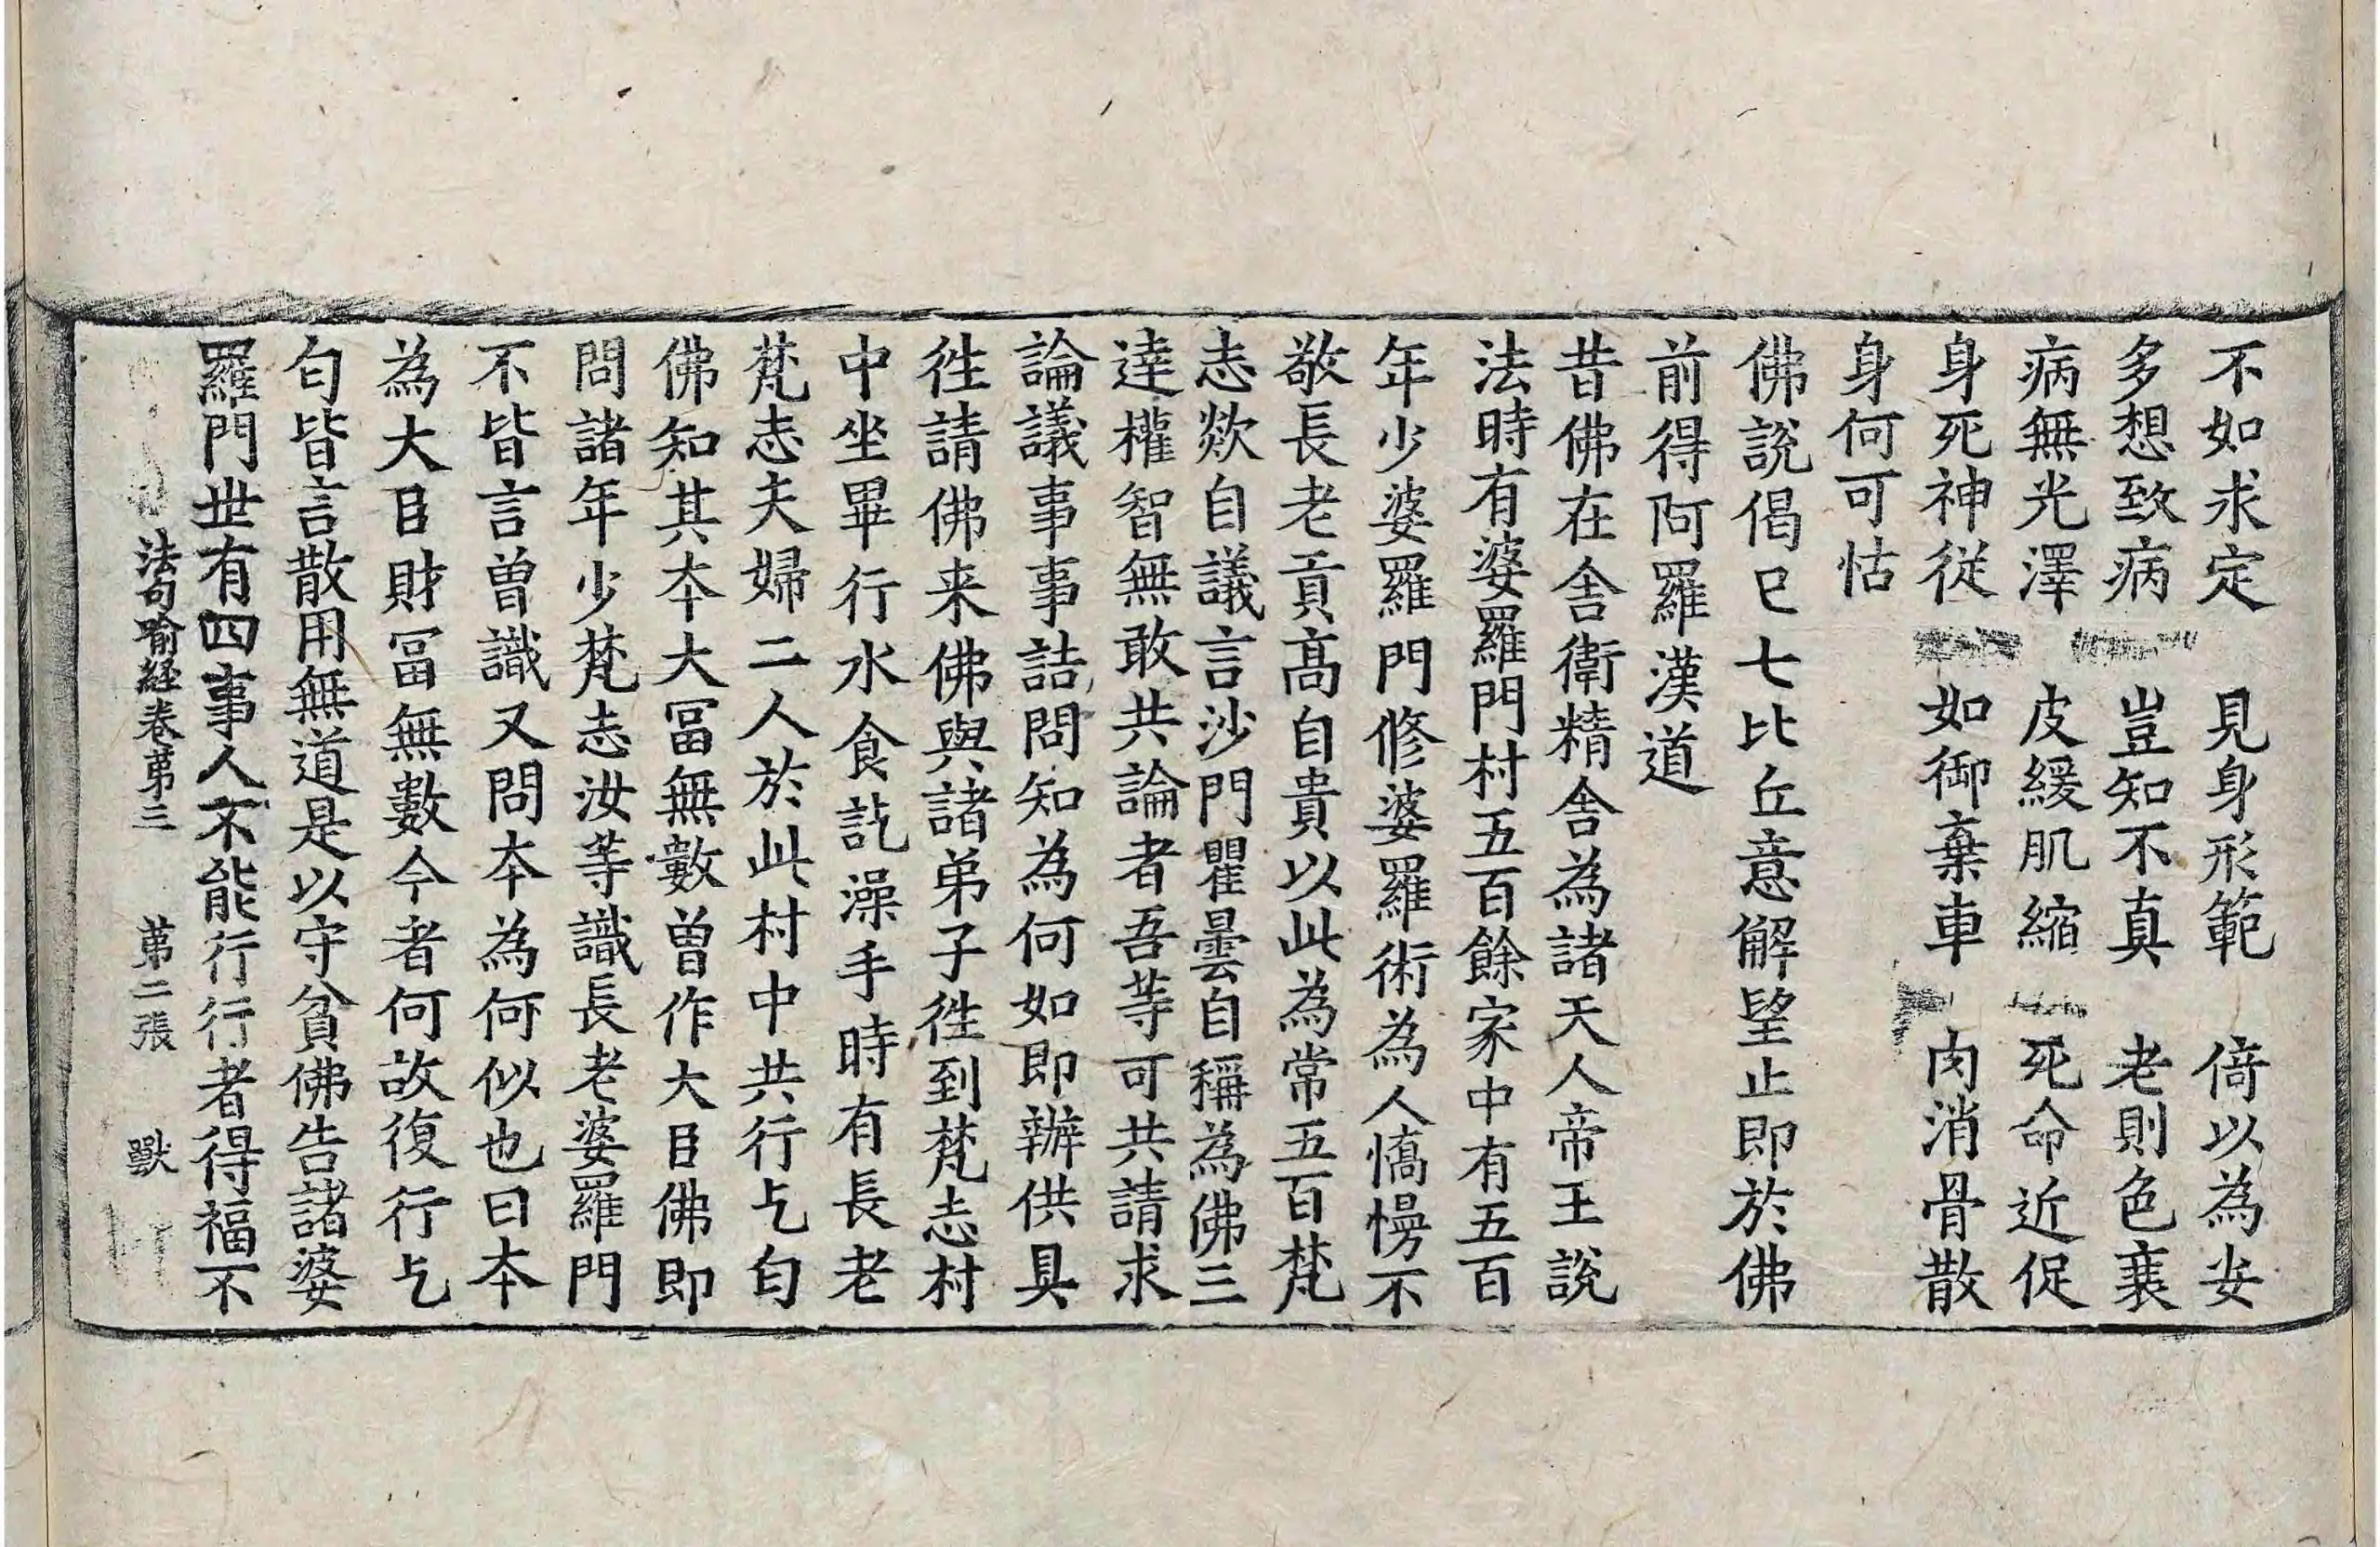 不如求定　見身形範　倚以為安
多想致病　豈知不真　老則色衰
病無光澤　皮緩肌縮　死命近促
身死神従　如御棄車　肉消骨散
身何可怙
佛說偈已七比丘意解望止即於佛
前得阿羅漢道
昔佛在舍衛精舍為諸天人帝王說
法時有婆羅門村五百餘家中有五百
年少婆羅門修婆羅術為人憍慢不
敬長老貢高自貴以此為常五百梵
志欻自議言沙門瞿曇自稱為佛三
達權智無敢共論者吾等可共請求
論議事事詰問知為何如即辦供具
徃請佛来佛與諸弟子徃到梵志村
中坐畢行水食訖澡手時有長老
梵志夫婦二人於此村中共行乞匄
佛知其本大冨無數曾作大臣佛即
問諸年少梵志汝等識長老婆羅門
不皆言曾識又問本為何似也曰本
為大臣財冨無數今者何故復行乞
匄皆言散用無道是以守貧佛告諸婆
羅門世有四事人不能行行者得福不
法句喻経卷第三　第二張　獸